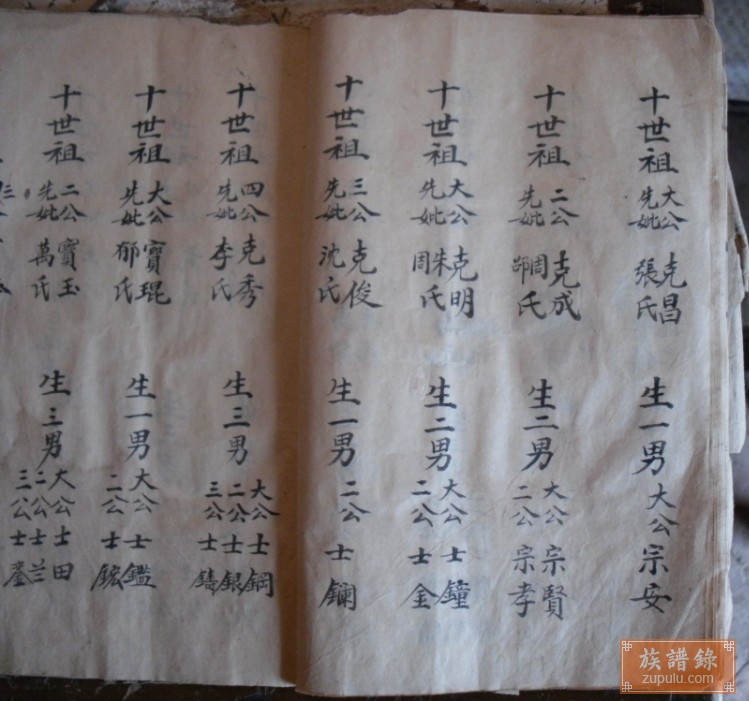 十世祖 大公 克昌 先妣 張氏 生一男 大公 宗安
十世祖 二公 克成 先妣 周氏 生二男 大公 宗賢 二公 宗孝
十世祖 大公 克明 先妣 朱周氏 生二男 大公 士鐘 二公 士金
十世祖 三公 克俊 先妣 沈氏 生一男 二公 士鑭
十世祖 四公 克秀 先妣 李氏 生三男 大公 士鋼 二公 士銀 三公 士鑄
十世祖 大公 寶琨 先妣 郁氏 生一男 大公 士鑑 二公 士
十世祖 二公 寶玉 先妣 萬氏 生三男 大公 士田 二公 士兰 三公 士
族譜錄
zupulu.com